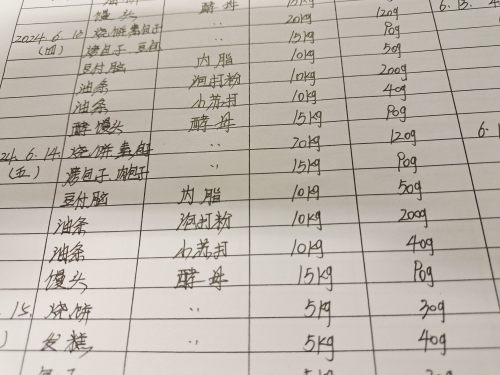 油条 15kg
馒头 酵母 15kg 6.13.
2024.6.13 烧饼煮包子 〃 20kg 120g
(四) 蒸包子、豆包 〃 15kg 90g
豆付脑 内脂 10kg 50g
油条 泡打粉 10kg 200g
油条 小苏打 10kg 40g
酵馒头 酵母 15kg 90g
24.6.14. 烧饼煮包子 〃 20kg 120g 6.1
(五) 蒸包子、肉包子 〃 15kg 90g
豆付脑 内脂 10kg 50g
油条 泡打粉 10kg 200g
油条 小苏打 10kg 40g
馒头 酵母 15kg 90g
.15. 烧饼 〃 5kg 30g
) 发糕 〃 5kg 40g